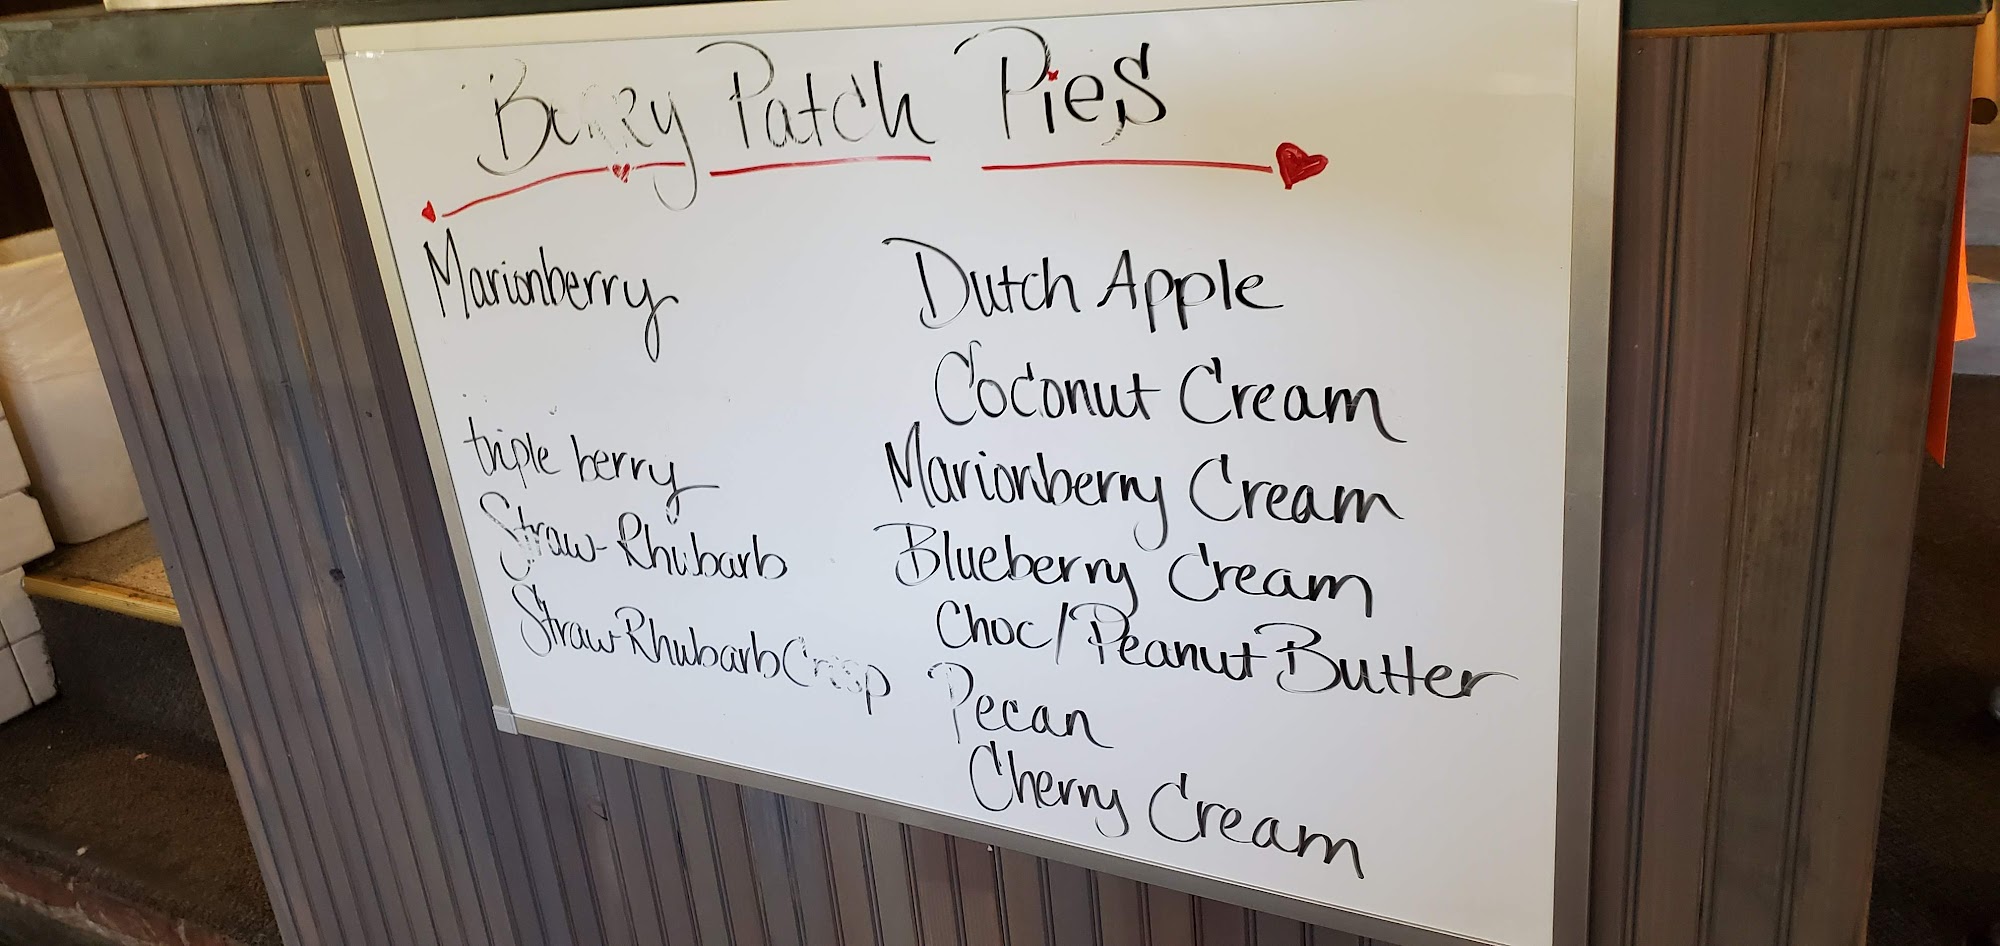 Berry Patch Pies
Marionberry
triple berry
Straw-Rhubarb
Straw-Rhubarb Crisp
Dutch Apple
Coconut Cream
Marionberry Cream
Blueberry Cream
Choc/Peanut Butter
Pecan
Cherry Cream